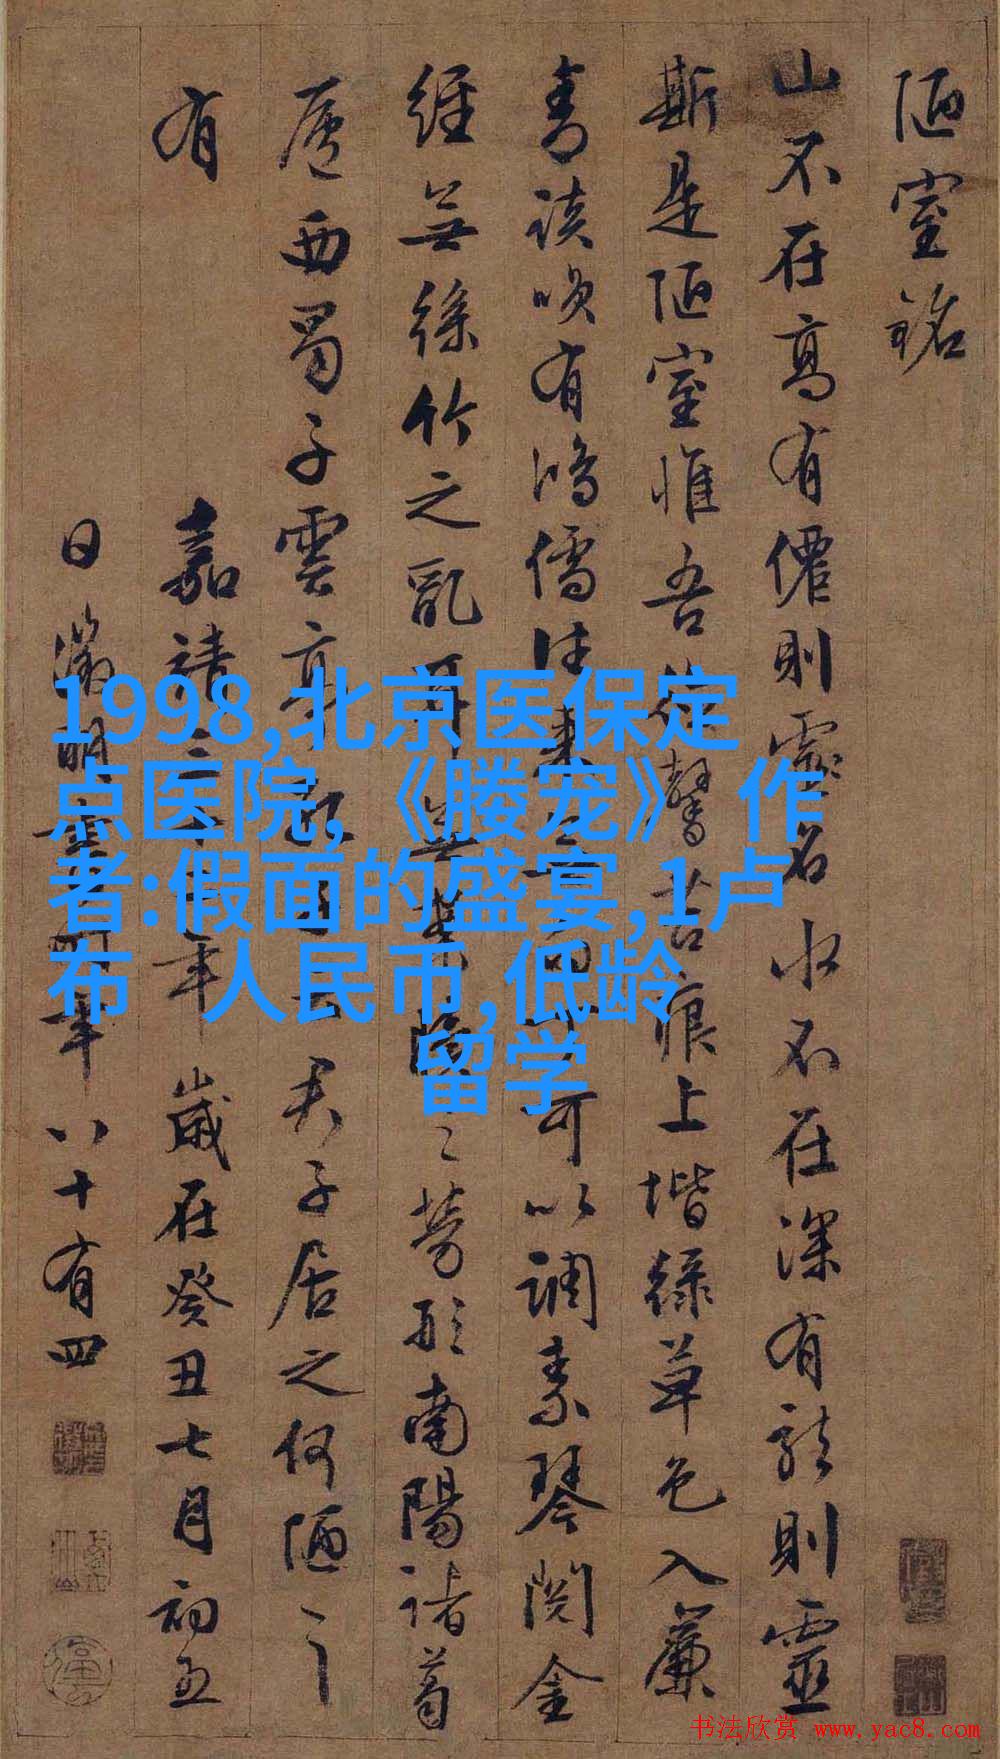 陋室銘
山不在高有僊則靈名水不在深有龍則靈
斯是陋室惟吾德馨苔痕上堦綠草色入簾
青談咲有鴻儒往來無白丁可以調素琴閱金
經無絲竹之亂耳無案牘之勞形南陽諸葛
廬西蜀子雲亭孔子云君子居之何陋之
有
嘉靖三十二年歲在癸丑七月初五
日徵明書時年八十有四
1998,北京医保定
点医院,《媵宠》 作
者:假面的盛宴,1卢
布 人民币,低龄
留学
书法欣赏 www.yac8.com